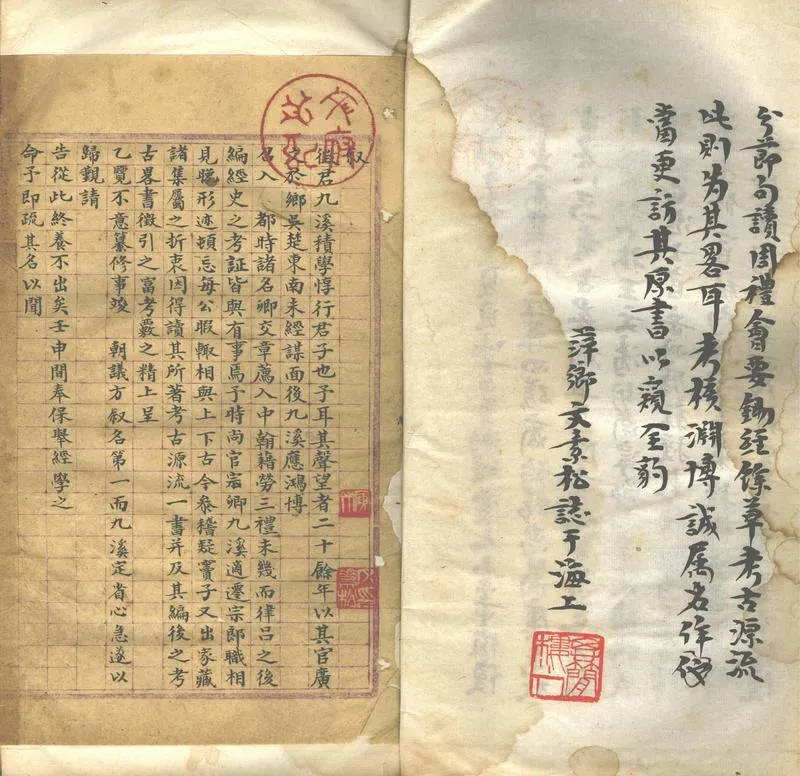 分節句讀周禮會要鋤經餘草考古源流
此則为其畧耳考核淵博誠属名作
當更訪其原書以窺全豹
萍鄉文素松誌于海上
叙
徵君九溪積學惇行君子也予耳其聲望者二十餘年以其官廣
文於鄉吳楚東南未經謀面後九溪應鴻博
召入 都時諸名卿交章薦入中翰藉勞三禮未幾而律呂之後
編經史之考証皆與有事焉予時尚官宗卿九溪適遷宗郎職相
見形迹頓忘每公暇輒相與上下古今參稽疑竇予又出家藏
諸集屬之折衷因得讀其所著考古源流一書并及其編後之考
古畧書徵引之富考覈之精上呈
乙覽不意纂修事竣 朝議方叙名第一而九溪定省心急遂以
歸覲請
告從此終養不出矣壬申間奉保舉經學之
命予即疏其名以聞